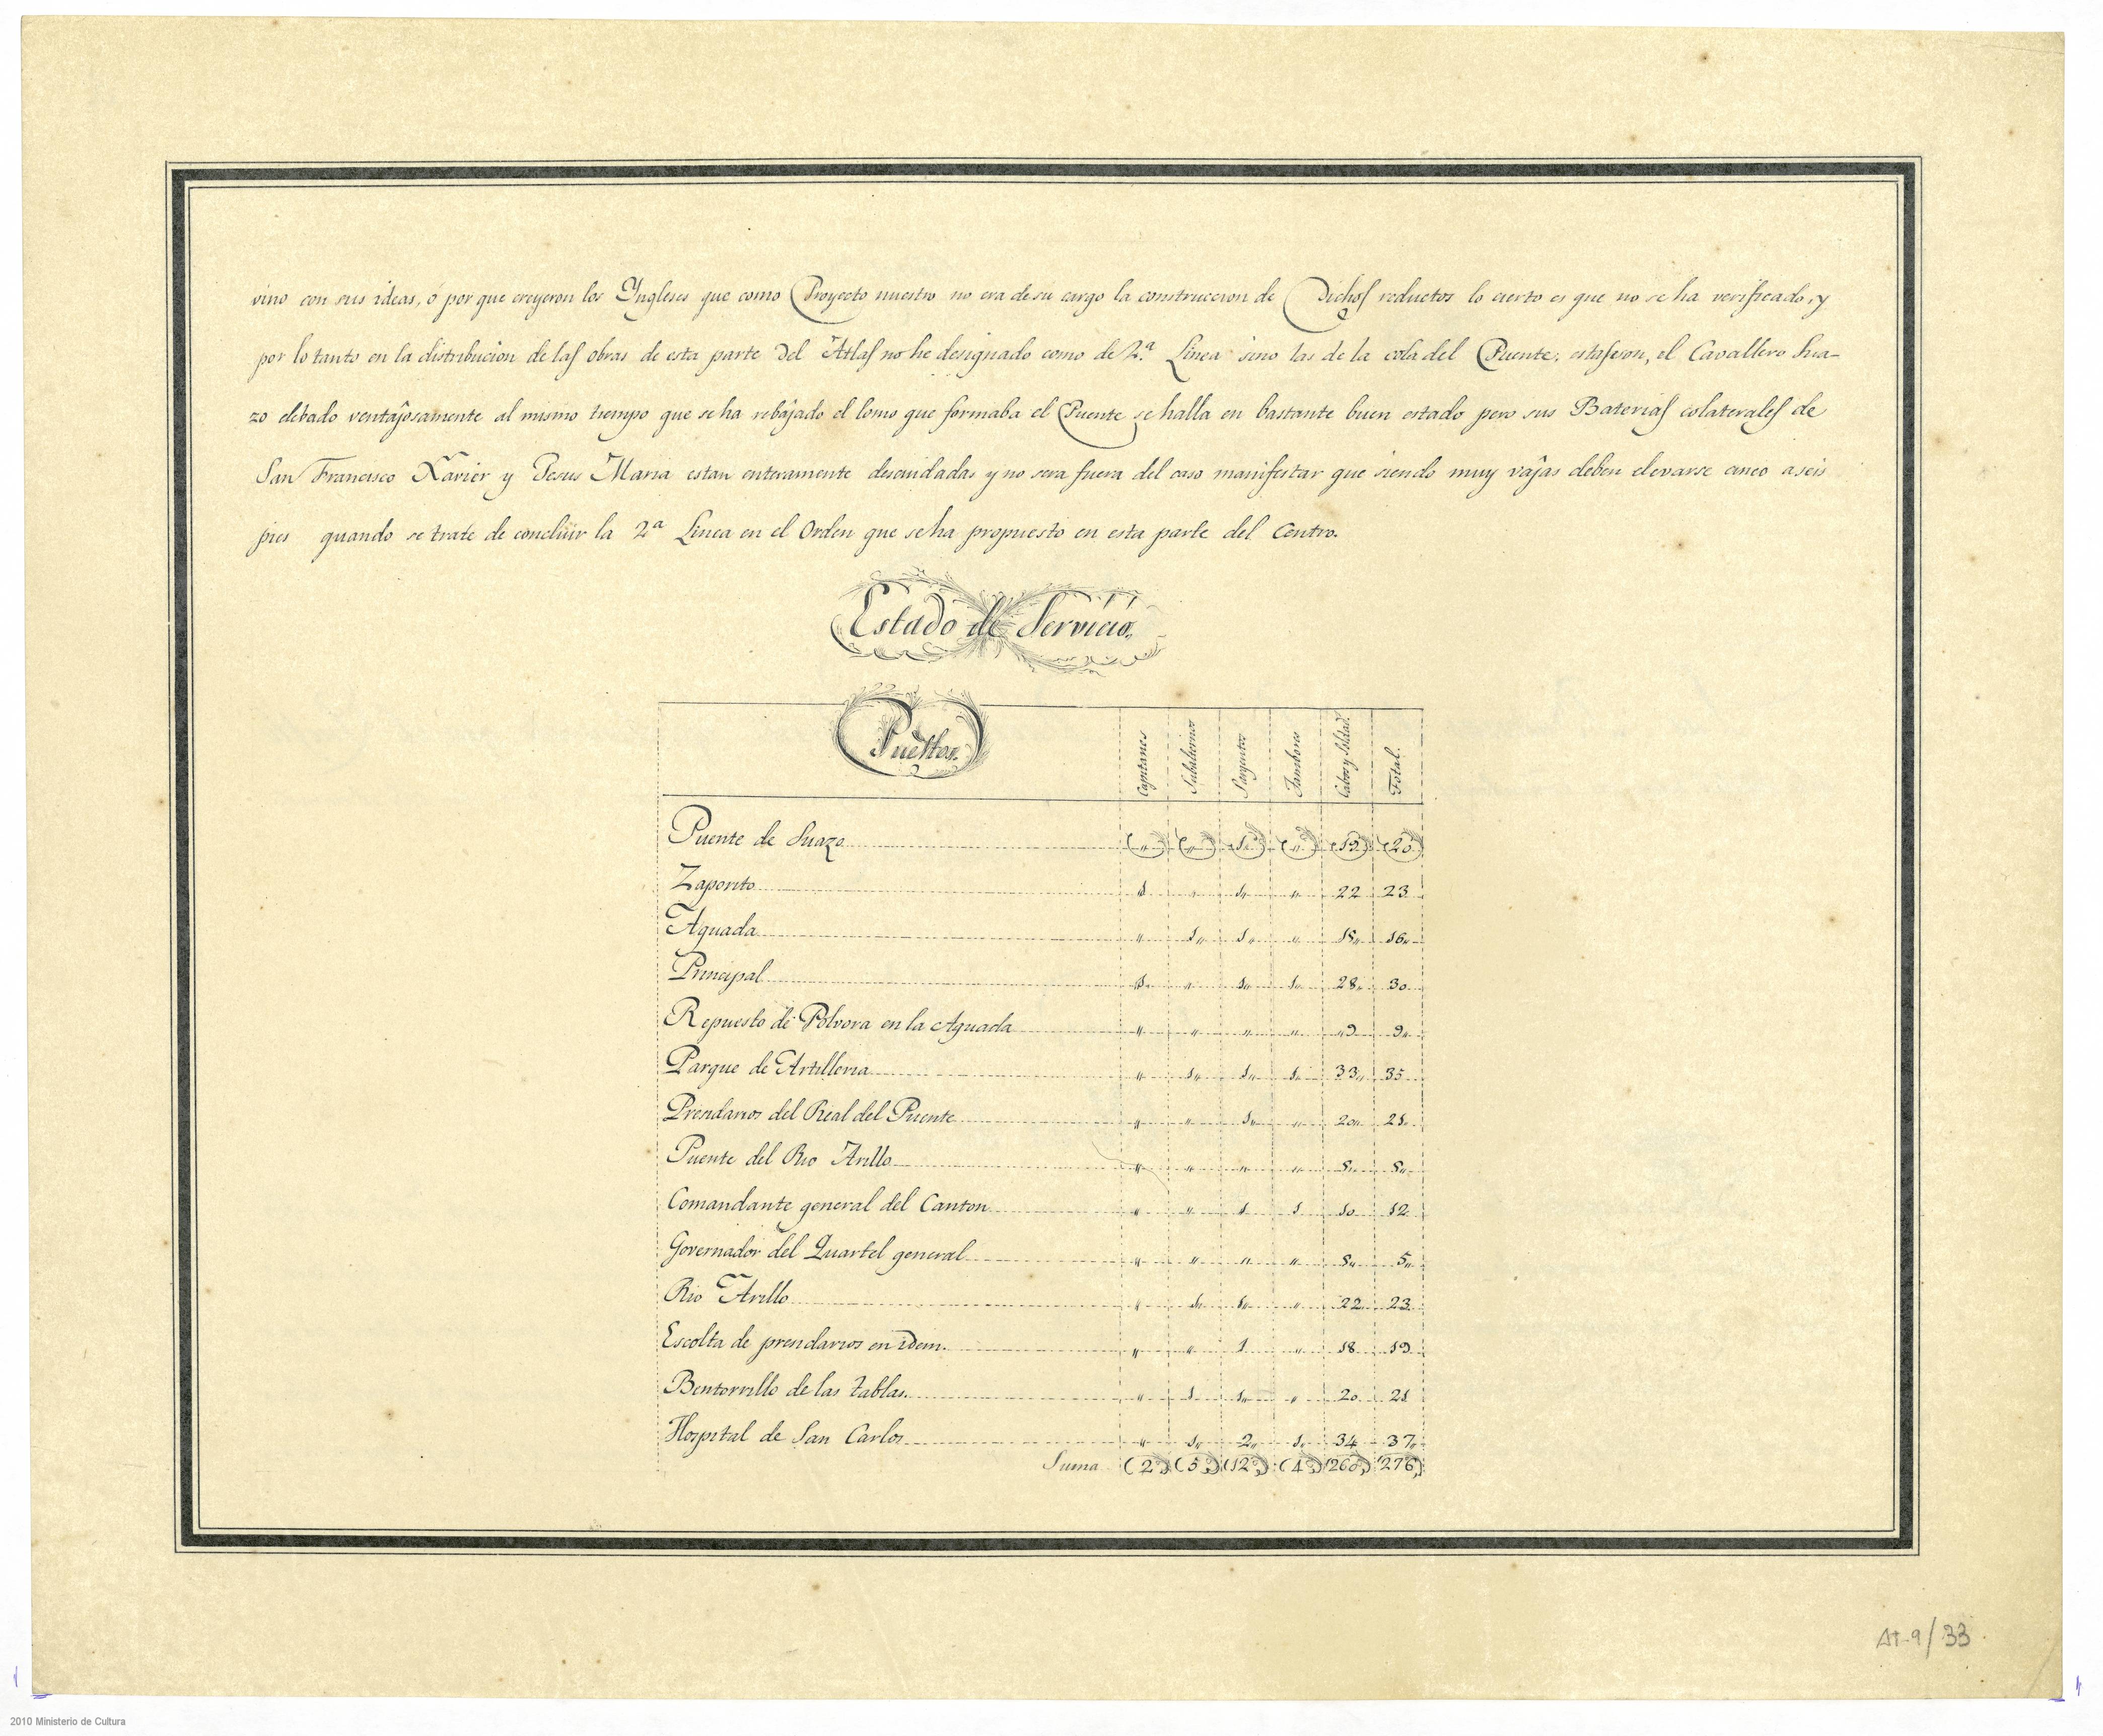 vino con sus ideas, ó por que creyeron los Yngleses que como Proyecto nuestro no era de su cargo la construccion de Dichos reductos lo cierto es que no se ha verificado, y
por lo tanto en la distribucion de las obras de esta parte del Atlas no he designado como de 2.ª Linea sino las de la cola del Puente; estas son, el Cavallero Sua-
zo elebado ventajosamente al mismo tiempo que se ha rebajado el lomo que formaba el Puente se halla en bastante buen estado pero sus Baterias colaterales de
San Francisco Xavier y Jesus Maria estan enteramente descuidadas y no sera fuera del caso manifestar que siendo muy vajas deben elevarse cinco a seis
pies quando se trate de concluir la 2ª Linea en el Orden que se ha propuesto en esta parte del Centro.
Estado de Servicio.
Puestos. Capitanes Subalternos Sargentos Tambores Cabos y Soldad.s Total.
Puente de Suazo (") (") (1") (") (19) (20)
Zaporito 1 " 1" " 22 23
Aguada " 1" 1" " 15" 16"
Principal 1" " 1" 1" 28" 30
Repuesto de Polvora en la Aguada " " " " "9 9"
Parque de Artilleria " 1" 1" 1" 33" 35
Prendarios del Real del Puente " " 1" " 20" 21"
Puente del Rio Arillo " " " " 5" 5"
Comandante general del Canton " " 1 1 10 12
Governador del Quartel general " " " " 5" 5"
Rio Arillo " 1" 1" " 22 23
Escolta de prendarios en idem. " " 1 " 18 19
Bentorrillo de las tablas " 1 1" " 20 21
Hospital de San Carlos " 1" 2" 1" 34 37"
Suma (2") (5") (12") (4") (260") (276")
At-9/33
2010 Ministerio de Cultura